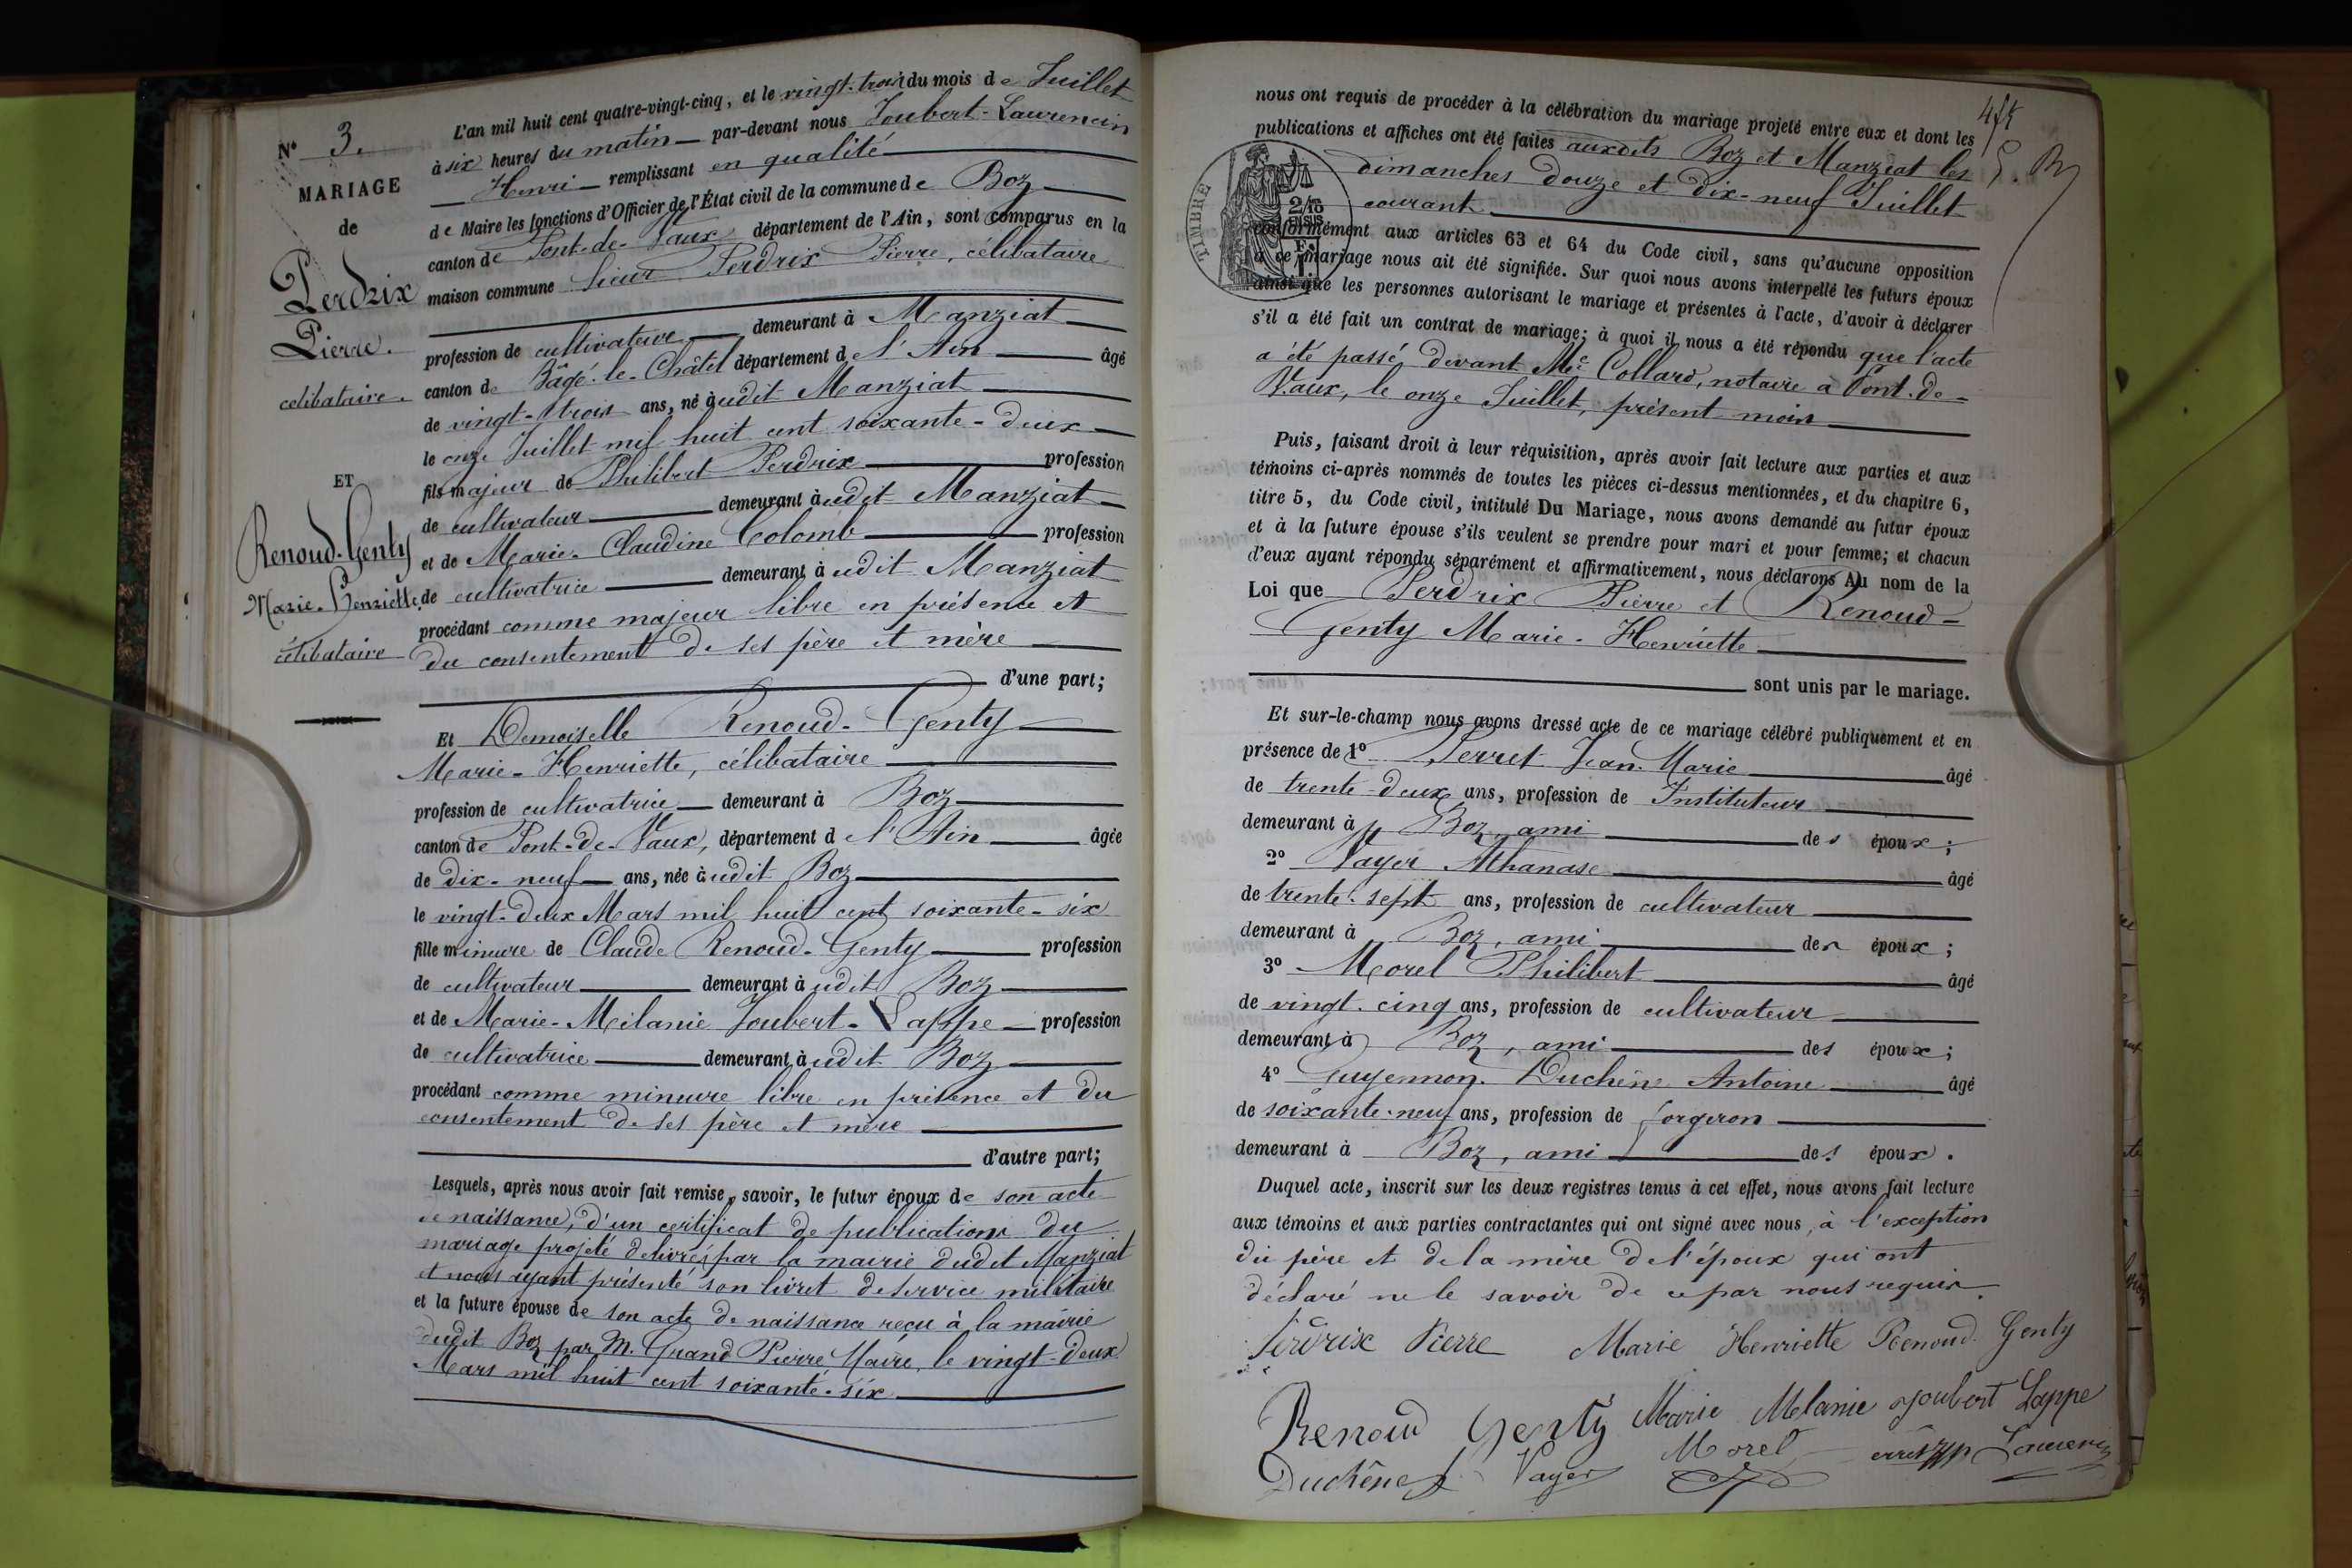 N° 3.
MARIAGE
de
Perdrix
Pierre.
célibataire.
ET
Renoud-Genty
Marie-Henriette,
célibataire
L'an mil huit cent quatre-vingt-cinq, et le vingt-trois du mois de Juillet
à six heures du matin par-devant nous Joubert-Laurencin
Henri remplissant en qualité
de Maire les fonctions d'Officier de l'État civil de la commune de Boz
canton de Pont-de-Vaux département de l'Ain, sont comparus en la
maison commune Sieur Perdrix Pierre, célibataire
profession de cultivateur demeurant à Manziat
canton de Bâgé-le-Châtel département de l'Ain âgé
de vingt-trois ans, né àudit Manziat
le onze Juillet mil huit cent soixante-deux
fils majeur de Philibert Perdrix profession
de cultivateur demeurant àudit Manziat
et de Marie-Claudine Colomb profession
de cultivatrice demeurant àudit Manziat
procédant comme majeur libre en présence et
du consentement de ses père et mère
d'une part;
Et Demoiselle Renoud-Genty
Marie-Henriette, célibataire
profession de cultivatrice demeurant à Boz
canton de Pont-de-Vaux, département de l'Ain âgée
de dix-neuf ans, née àudit Boz
le vingt-deux Mars mil huit cent soixante-six
fille mineure de Claude Renoud-Genty profession
de cultivateur demeurant àudit Boz
et de Marie-Mélanie Joubert-Lappe profession
de cultivatrice demeurant àudit Boz
procédant comme mineure libre en présence et du
consentement de ses père et mère
d'autre part;
Lesquels, après nous avoir fait remise, savoir, le futur époux de son acte
de naissance, d'un certificat de publications du
mariage projeté délivrés par la mairie dudit Manziat
et nous ayant présenté son livret de service militaire
et la future épouse de son acte de naissance reçu à la mairie
dudit Boz par M. Grand Pierre Maire, le vingt-deux
Mars mil huit cent soixante-six
nous ont requis de procéder à la célébration du mariage projeté entre eux et dont les
publications et affiches ont été faites auxdits Boz et Manziat les
dimanches douze et dix-neuf Juillet
courant
TIMBRE
2/10
EN SUS
conformément aux articles 63 et 64 du Code civil, sans qu'aucune opposition
à ce mariage nous ait été signifiée. Sur quoi nous avons interpellé les futurs époux
ainsi que les personnes autorisant le mariage et présentes à l'acte, d'avoir à déclarer
s'il a été fait un contrat de mariage; à quoi il nous a été répondu que l'acte
a été passé devant Me Collard, notaire à Pont-de-
Vaux, le onze Juillet, présent mois
Puis, faisant droit à leur réquisition, après avoir fait lecture aux parties et aux
témoins ci-après nommés de toutes les pièces ci-dessus mentionnées, et du chapitre 6,
titre 5, du Code civil, intitulé Du Mariage, nous avons demandé au futur époux
et à la future épouse s'ils veulent se prendre pour mari et pour femme; et chacun
d'eux ayant répondu séparément et affirmativement, nous déclarons Au nom de la
Loi que Perdrix Pierre et Renoud-
Genty Marie-Henriette
sont unis par le mariage.
Et sur-le-champ nous avons dressé acte de ce mariage célébré publiquement et en
présence de 1° Perret Jean-Marie âgé
de trente-deux ans, profession de Instituteur
demeurant à Boz, ami des époux;
2° Vayer Athanase âgé
de trente-sept ans, profession de cultivateur
demeurant à Boz, ami des époux;
3° Morel Philibert âgé
de vingt-cinq ans, profession de cultivateur
demeurant à Boz, ami des époux;
4° Guyennon-Duchêne Antoine âgé
de soixante-neuf ans, profession de forgeron
demeurant à Boz, ami des époux.
Duquel acte, inscrit sur les deux registres tenus à cet effet, nous avons fait lecture
aux témoins et aux parties contractantes qui ont signé avec nous, à l'exception
du père et de la mère de l'époux qui ont
déclaré ne le savoir de ce par nous requis.
Perdrix Pierre Marie Henriette Renoud Genty
Renoud Genty Marie Melanie Joubert Lappe
Duchêne Vayer Morel Laurencin